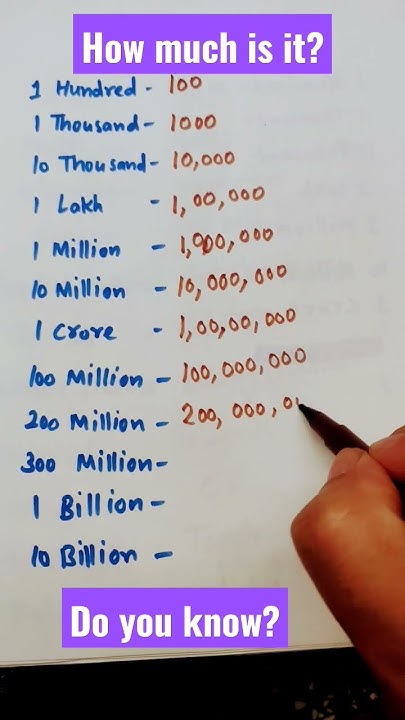 How much is it?
1 Hundred - 100
1 Thousand - 1000
10 Thousand - 10,000
1 Lakh - 1,00,000
1 Million - 1,000,000
10 Million - 10,000,000
1 Crore - 1,00,00,000
100 Million - 100,000,000
200 Million - 200,000,0
300 Million -
1 Billion -
10 Billion -
Do you know?